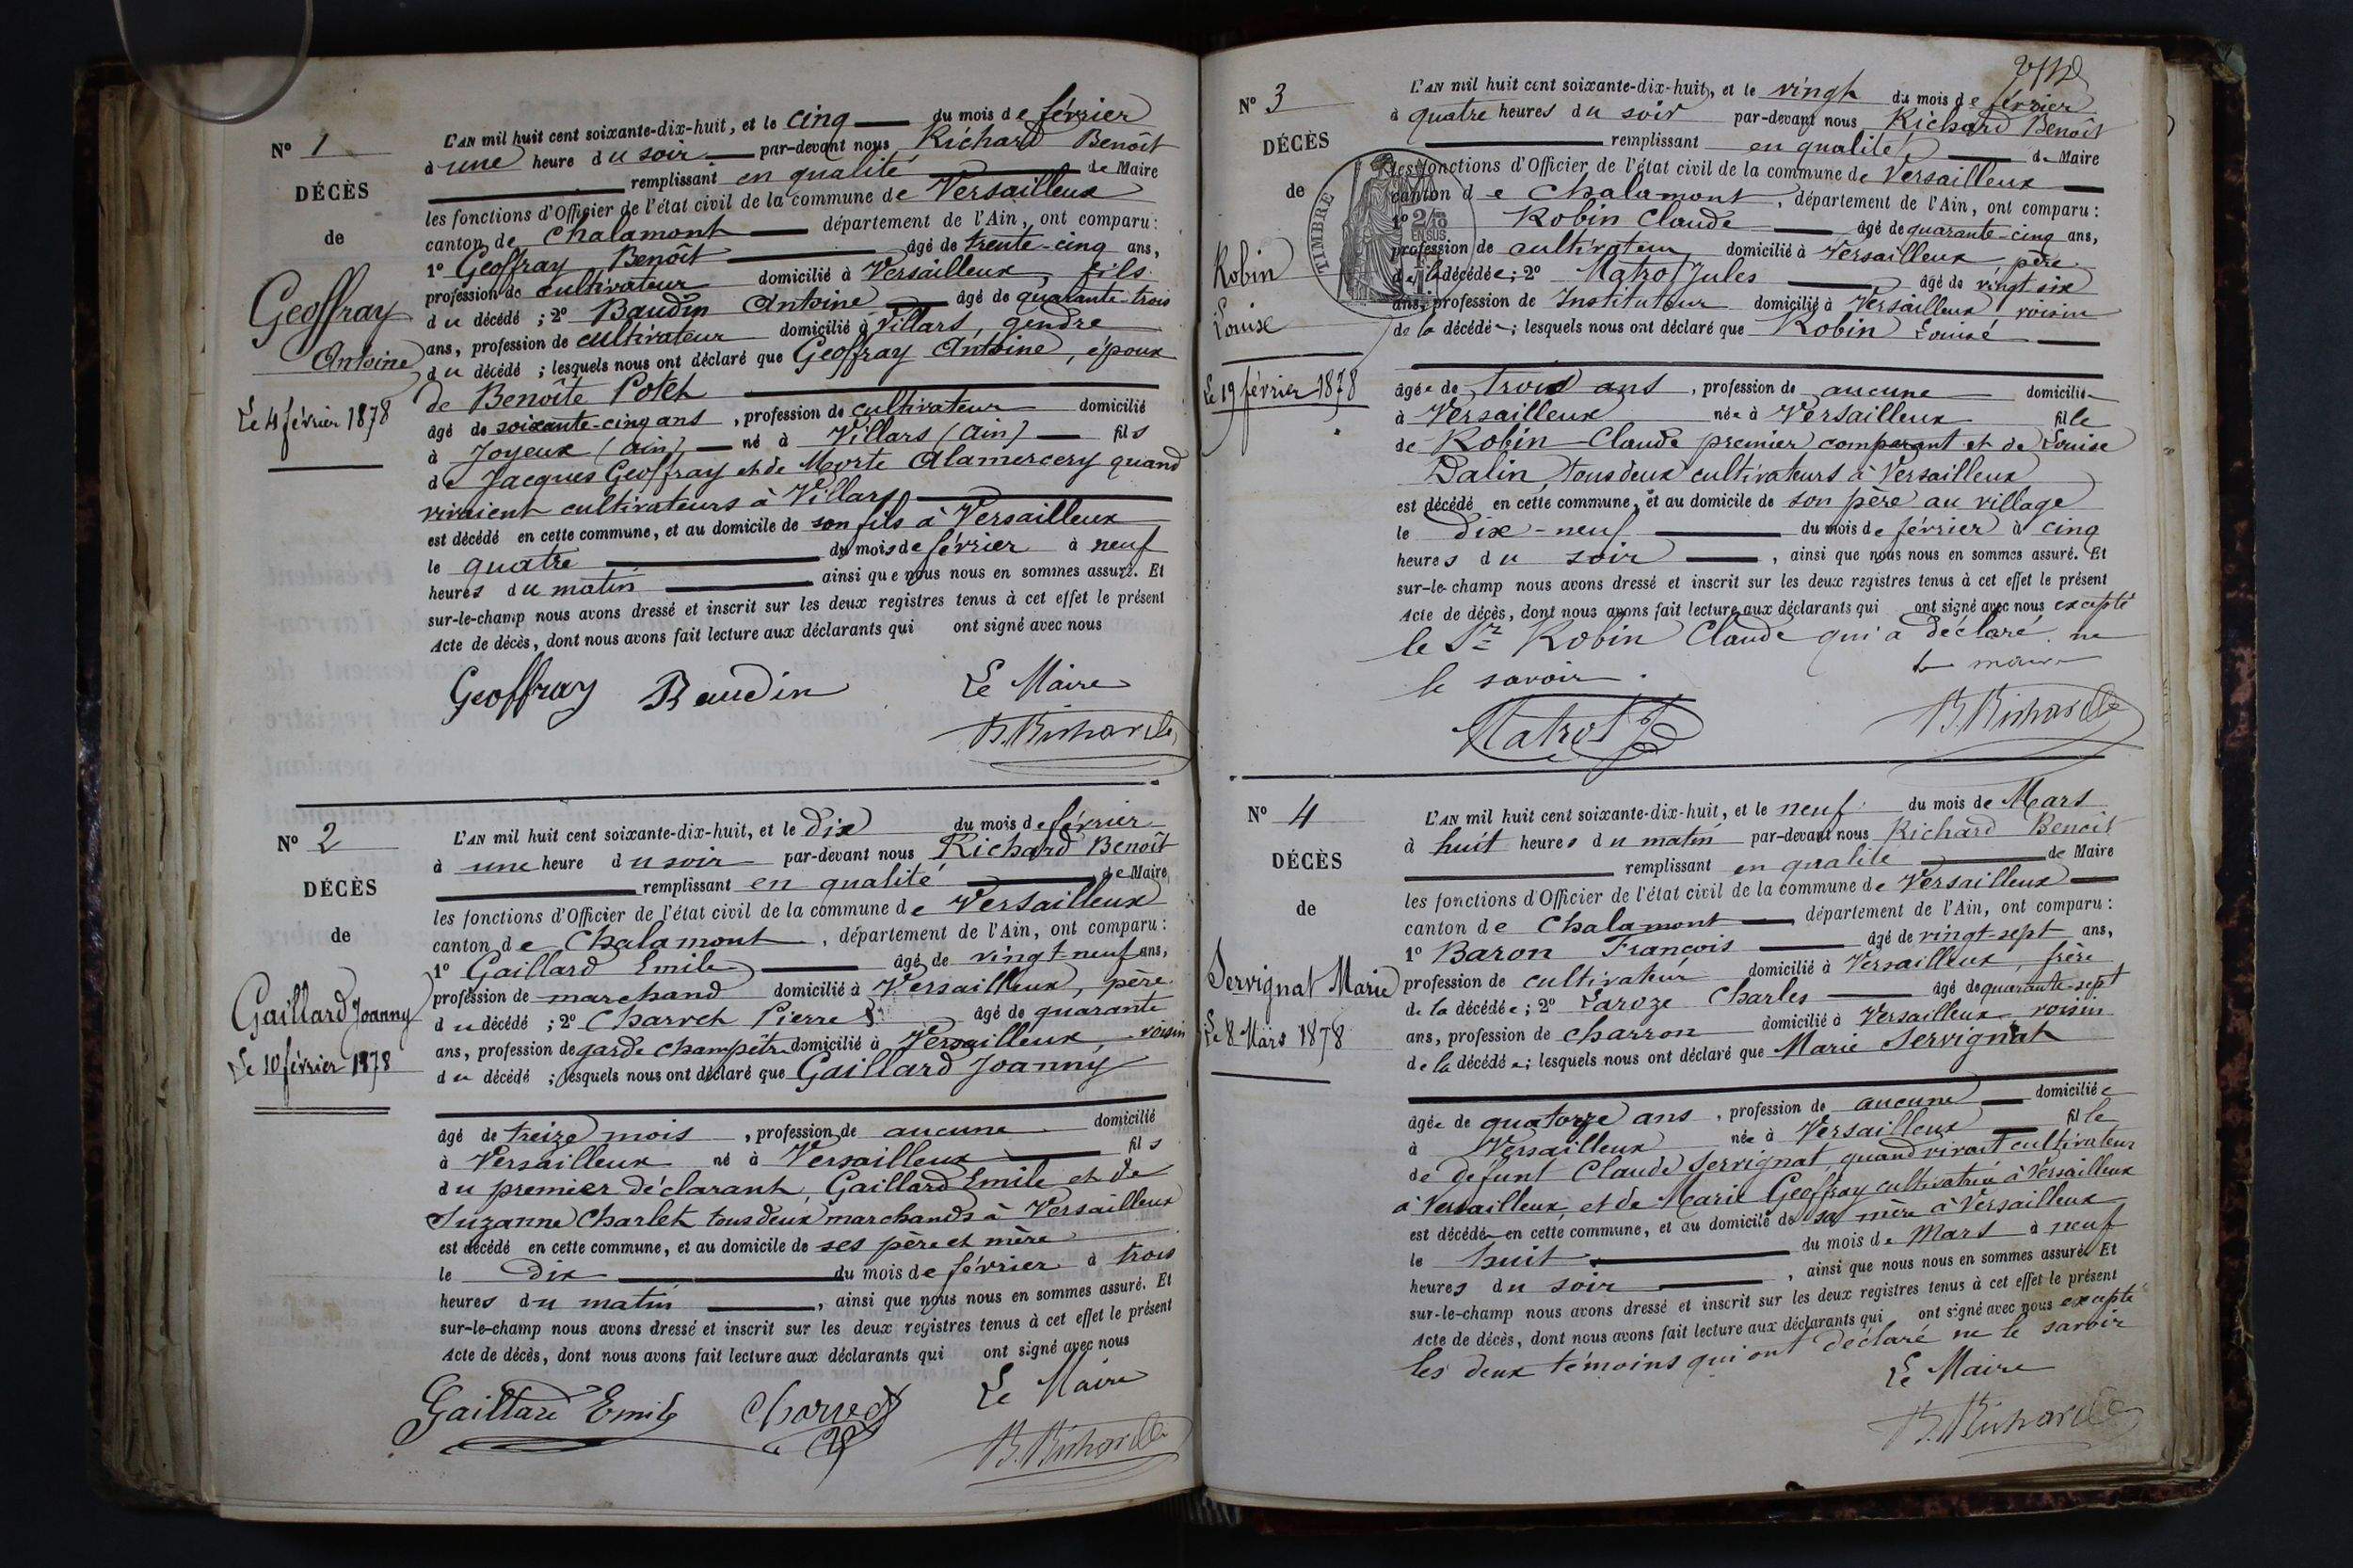 N° 1
DÉCÈS
de
Geoffray
Antoine
Le 4 février 1878
L'AN mil huit cent soixante-dix-huit, et le cinq du mois de février
à une heure du soir par-devant nous Richard Benoît
remplissant en qualité de Maire
les fonctions d'Officier de l'état civil de la commune de Versailleux
canton de Chalamont département de l'Ain, ont comparu :
1° Geoffray Benoît âgé de trente-cinq ans,
profession de cultivateur domicilié à Versailleux, fils
du décédé ; 2° Baudin Antoine âgé de quarante-trois
ans, profession de cultivateur domicilié à Villars, gendre
du décédé ; lesquels nous ont déclaré que Geoffray Antoine, époux
de Benoîte
âgé de soixante-cinq ans, profession de cultivateur domicilié
à Joyeux (Ain) né à Villars (Ain) fils
de Jacques Geoffray et de Alamercery quand
vivaient cultivateurs à Villars
est décédé en cette commune, et au domicile de son fils à Versailleux
le quatre du mois de février à neuf
heures du matin ainsi que nous nous en sommes assuré. Et
sur-le-champ nous avons dressé et inscrit sur les deux registres tenus à cet effet le présent
Acte de décès, dont nous avons fait lecture aux déclarants qui ont signé avec nous
Geoffray Baudin Le Maire
B. Richard
N° 2
DÉCÈS
de
Gaillard Joanny
Le 10 février 1878
L'AN mil huit cent soixante-dix-huit, et le dix du mois de février
à une heure du soir par-devant nous Richard Benoît
remplissant en qualité de Maire
les fonctions d'Officier de l'état civil de la commune de Versailleux
canton de Chalamont, département de l'Ain, ont comparu :
1° Gaillard Emile âgé de vingt-neuf ans,
profession de marchand domicilié à Versailleux, père
du décédé ; 2° Charvet Pierre âgé de quarante
ans, profession de garde champêtre domicilié à Versailleux, voisin
du décédé ; lesquels nous ont déclaré que Gaillard Joanny
âgé de treize mois, profession de aucune domicilié
à Versailleux né à Versailleux fils
du premier déclarant, Gaillard Emile et de
Suzanne Charlet tous deux marchands à Versailleux
est décédé en cette commune, et au domicile de ses père et mère
le dix du mois de février à trois
heures du matin, ainsi que nous nous en sommes assuré. Et
sur-le-champ nous avons dressé et inscrit sur les deux registres tenus à cet effet le présent
Acte de décès, dont nous avons fait lecture aux déclarants qui ont signé avec nous
Gaillard Emile Charvet Le Maire
B. Richard
N° 3
DÉCÈS
de
Robin
Louise
Le 19 février 1878
TIMBRE
L'AN mil huit cent soixante-dix-huit, et le vingt du mois de février
à quatre heures du soir par-devant nous Richard Benoît
remplissant en qualité de Maire
les fonctions d'Officier de l'état civil de la commune de Versailleux
canton de Chalamont, département de l'Ain, ont comparu :
1° Robin Claude âgé de quarante-cinq ans,
profession de cultivateur domicilié à Versailleux père
de la décédée ; 2° Matrot Jules âgé de vingt six
ans, profession de Instituteur domicilié à Versailleux voisin
de la décédée ; lesquels nous ont déclaré que Robin Louise
âgée de trois ans, profession de aucune domiciliée
à Versailleux née à Versailleux fille
de Robin Claude premier comparant et de Louise
Dalin, tous deux cultivateurs à Versailleux
est décédé en cette commune, et au domicile de son père au village
le dix-neuf du mois de février à cinq
heures du soir, ainsi que nous nous en sommes assuré. Et
sur-le-champ nous avons dressé et inscrit sur les deux registres tenus à cet effet le présent
Acte de décès, dont nous avons fait lecture aux déclarants qui ont signé avec nous excepté
le Sr Robin Claude qui a déclaré ne
le savoir. Le maire
Matrot J B. Richard
N° 4
DÉCÈS
de
Servignat Marie
Le 8 Mars 1878
L'AN mil huit cent soixante-dix-huit, et le neuf du mois de Mars
à huit heures du matin par-devant nous Richard Benoît
remplissant en qualité de Maire
les fonctions d'Officier de l'état civil de la commune de Versailleux
canton de Chalamont département de l'Ain, ont comparu :
1° Baron François âgé de vingt-sept ans,
profession de cultivateur domicilié à Versailleux, frère
de la décédée ; 2° Laroze Charles âgé de quarante-sept
ans, profession de charron domicilié à Versailleux voisin
de la décédée ; lesquels nous ont déclaré que Marie Servignat
âgée de quatorze ans, profession de aucune domiciliée
à Versailleux née à Versailleux fille
de défunt Claude Servignat, quand vivait cultivateur
à Versailleux et de Marie Geoffray cultivatrice à Versailleux
est décédée en cette commune, et au domicile de sa mère à Versailleux
le huit du mois de Mars à neuf
heures du soir, ainsi que nous nous en sommes assuré. Et
sur-le-champ nous avons dressé et inscrit sur les deux registres tenus à cet effet le présent
Acte de décès, dont nous avons fait lecture aux déclarants qui ont signé avec nous excepté
les deux témoins qui ont déclaré ne le savoir
Le Maire
B. Richard